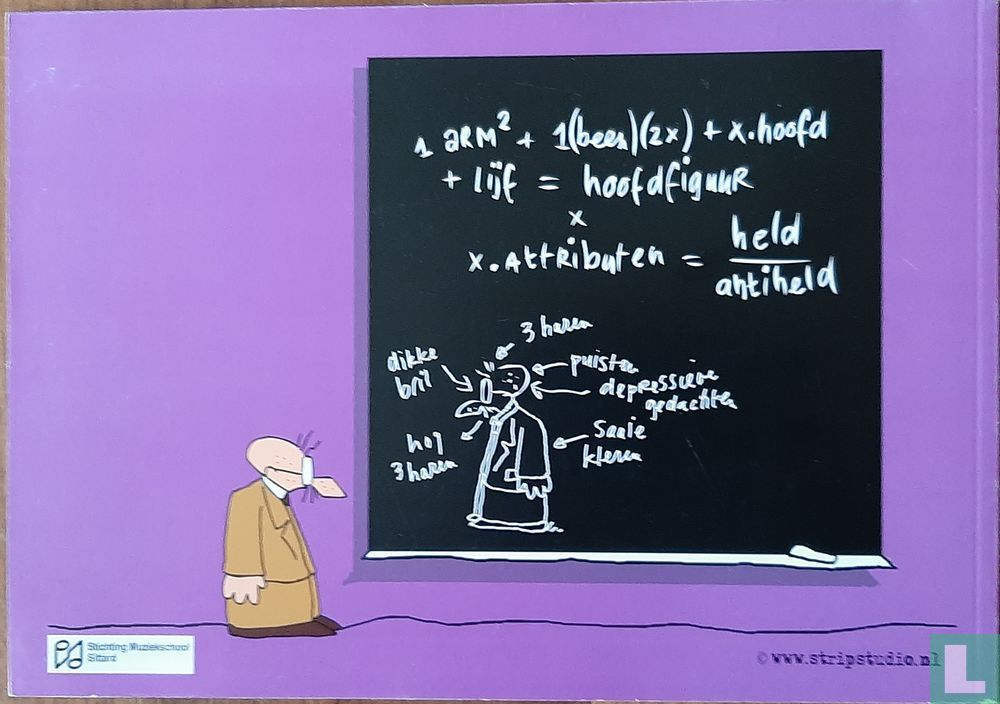 1 ARM² + 1(been)(2x) + x.hoofd
+ lijf = hoofdfiguuR
x
x.AttRibuten = held
antiheld
3 haren
dikke
bril
puisten
depressieve
gedachten
saaie
kleren
nog
3 haren
Stichting Muziekschool
Sittard
© www.stripstudio.nl
L